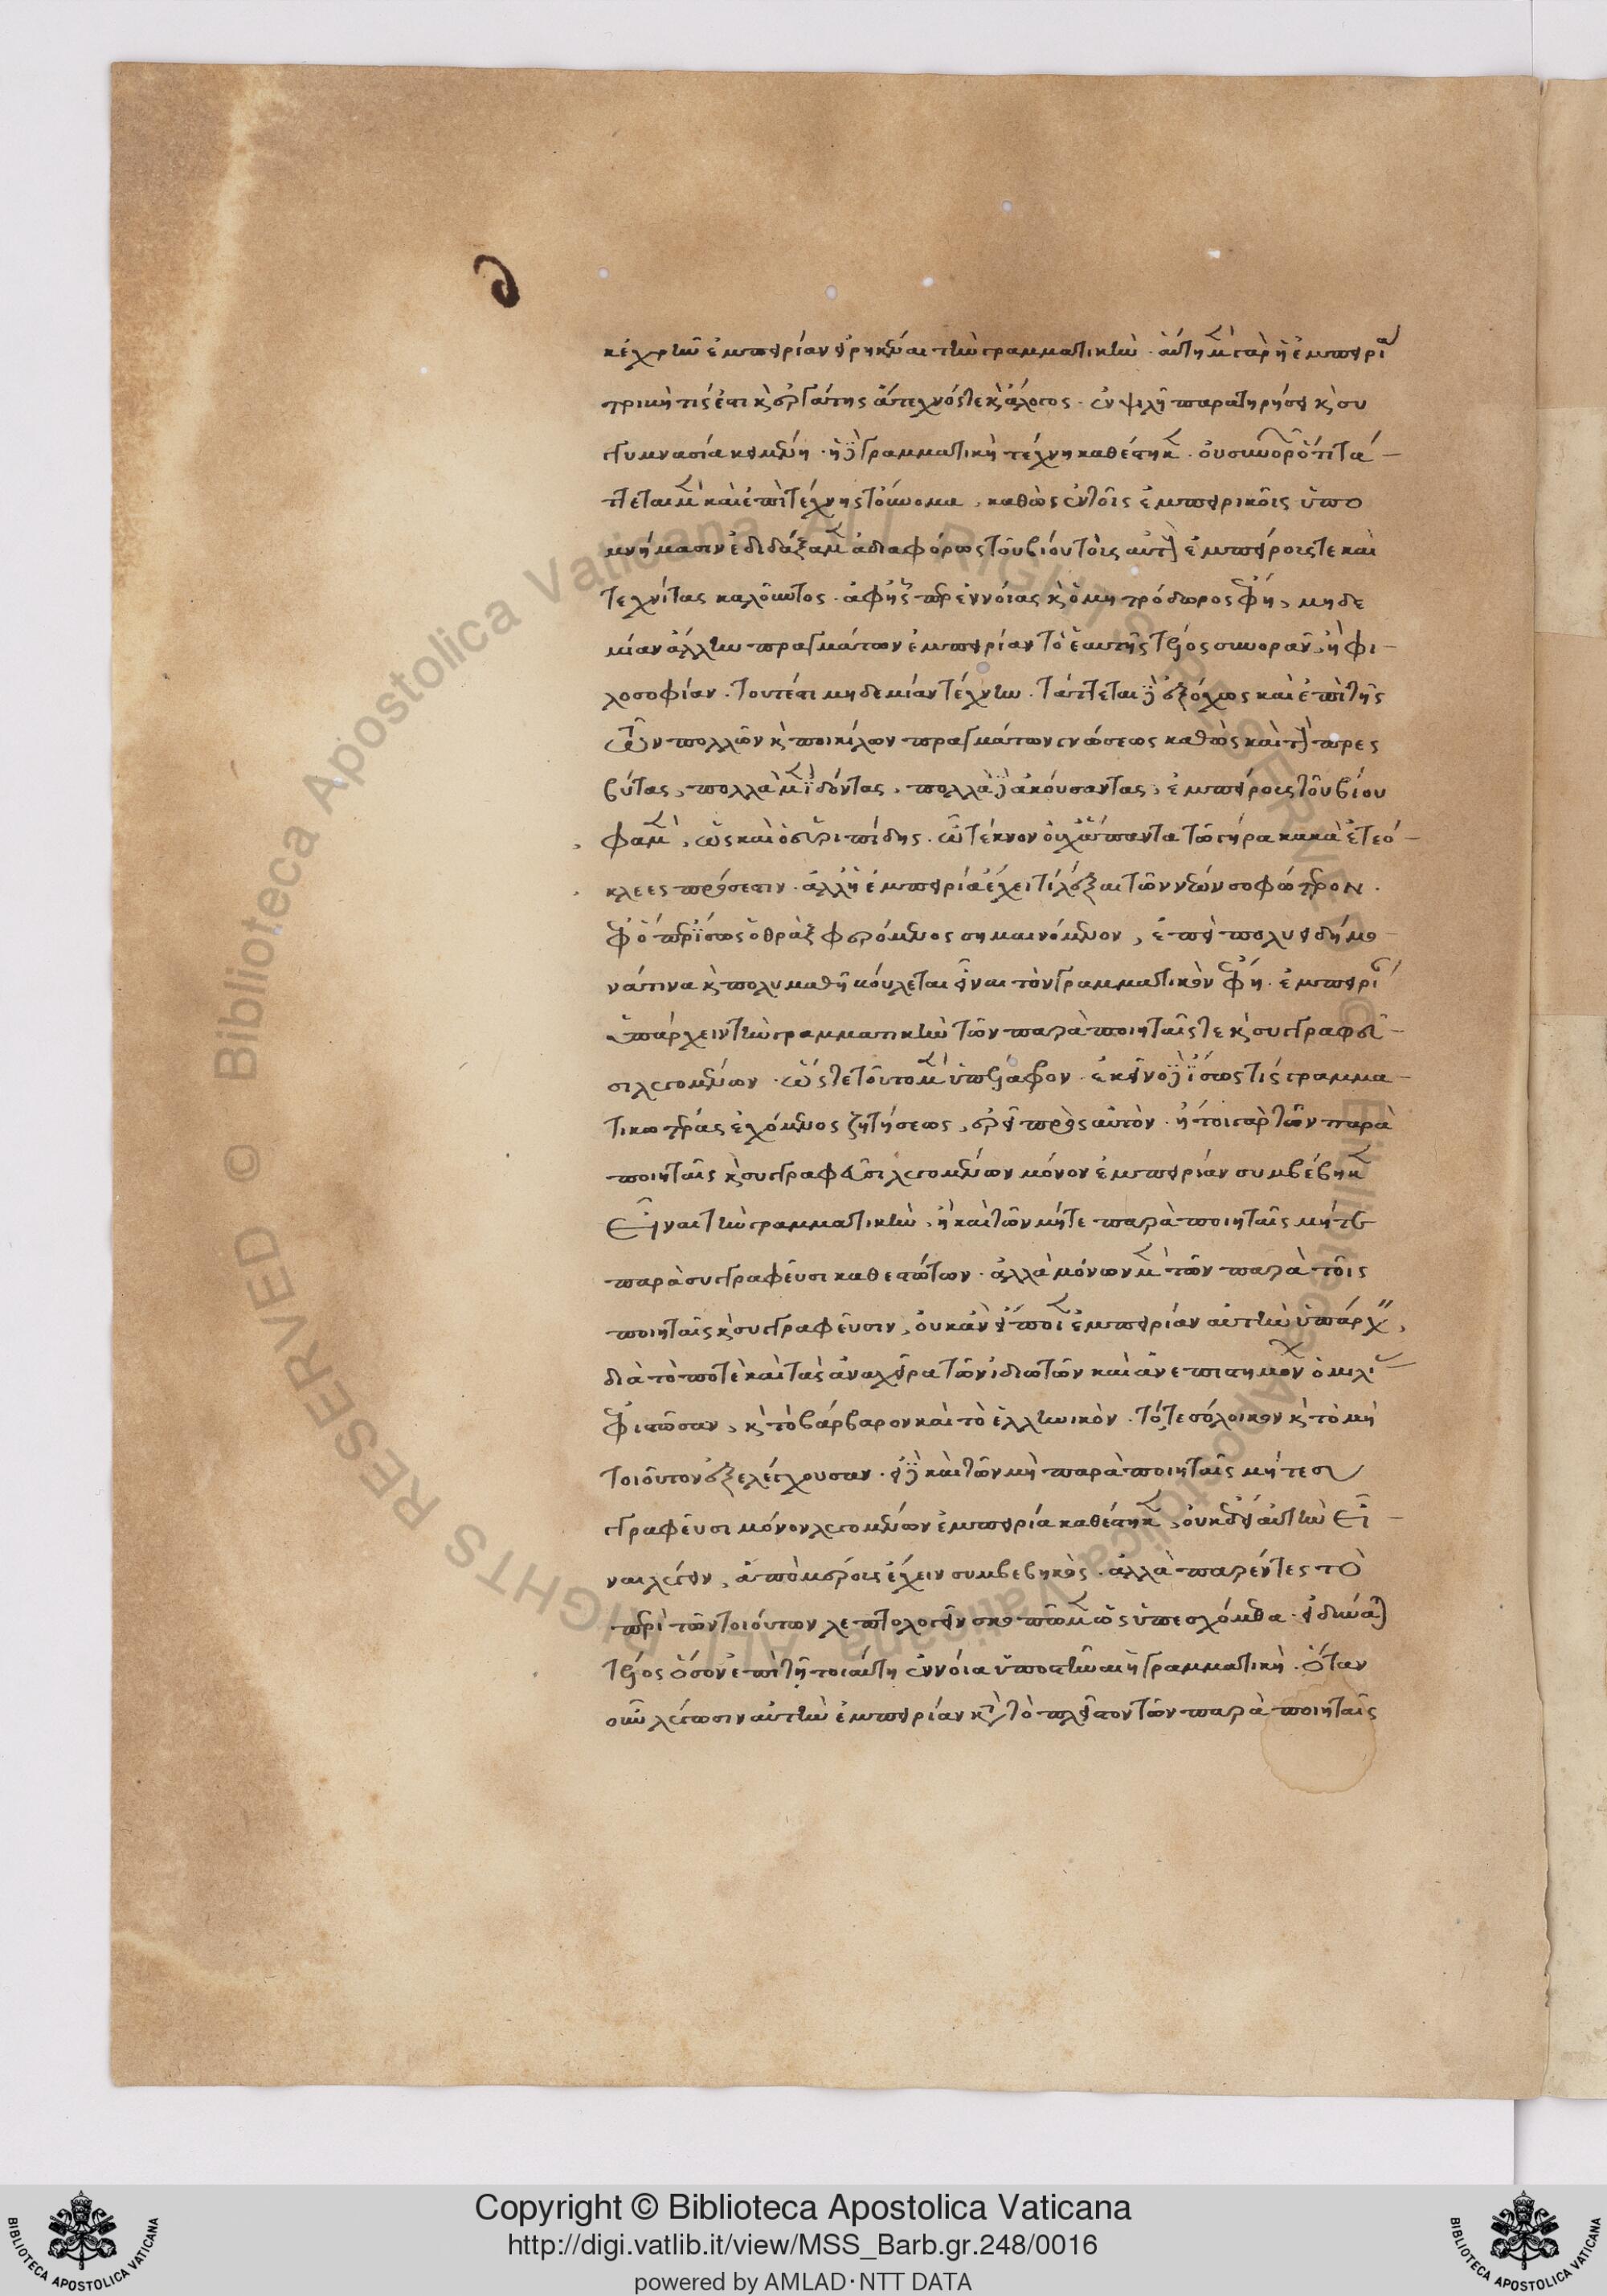 κέχρηται ἐμπειρίαν εἰρηκέναι τὴν γραμματικήν. αὕτη μὲν γὰρ ἡ ἐμπειρία
τριβή τίς ἐστι κὶ ἐργάτης ἄτεχνός τε κὶ ἄλογος. ἐν ψιλῇ παρατηρήσει κὶ συ
γυμνασία κειμένη. ἡ δὲ γραμματικὴ τέχνη καθέστηκεν. οὐ συνορῶν ὅτι τά
ττεται μὲν καὶ ἐπὶ τέχνης τοὔνομα, καθὼς ἐν τοῖς ἐμπειρικοῖς ὑπο
μνήμασιν ἐδιδάξαμεν ἀδιαφόρως τοῦ βίου τοὺς αὐτοὺς ἐμπείρους τε καὶ
τεχνίτας καλοῦντος. ἀφ' ἧς περ ἐννοίας κὶ ὁ μητρόδωρος ἔφη, μηδε
μίαν ἄλλην πραγμάτων ἐμπειρίαν τὸ ἑαυτῆς τέλος συνορᾶν, ἢ φι
λοσοφίαν. τουτέστι μηδεμίαν τέχνην. τάττεται δὲ ἐξόχως καὶ ἐπὶ τῆς
τῶν πολλῶν κὶ ποικίλων πραγμάτων γνώσεως καθὼς καὶ τοὺς πρεσ
βύτας, πολλὰ μὲν ἰδόντας, πολλὰ δὲ ἀκούσαντας, ἐμπείρους τοῦ βίου
φαμέν, ὡς καὶ ὁ εὐριπίδης. ὦ τέκνον οὐχ ἅπαντα τῷ γήρα κακὰ ἐτεό
κλεες πρόσεστιν. ἀλλ' ἡ ἐμπειρία ἔχει τι λέξαι τῶν νέων σοφώτερον.
ἐφ' ὅπερ ἴσως ὁ θρᾲξ φερόμενος σημαινόμενον, ἐπεὶ πολυειδήμο
νά τινα κὶ πολυμαθῆ βούλεται εἶναι τὸν γραμματικὸν ἔφη. ἐμπειρίαν
ὑπάρχειν τὴν γραμματικὴν τῶν παρὰ ποιηταῖς τε κὶ συγγραφεῦ
σι λεγομένων. ὥστε τοῦτο μὲν ὑπέγραφον. ἐκεῖνο δὲ ἴσως τὶς γραμμα
τικωτέρας ἐχόμενος ζητήσεως, ἐρεῖ πρὸς αὐτόν. ἤτοι γὰρ τῶν παρὰ
ποιηταῖς κὶ συγγραφεῦσι λεγομένων μόνον ἐμπειρίαν συμβέβηκεν
εἶναι τὴν γραμματικήν, ἢ καὶ τῶν μήτε παρὰ ποιηταῖς μήτε
παρὰ συγγραφεῦσι καθεστώτων. ἀλλὰ μόνων μὲν τῶν παρὰ τοῖς
ποιηταῖς κὶ συγγραφεῦσιν, οὐκ ἂν εἴποιμεν ἐμπειρίαν αὐτὴν ὑπάρχειν,
διὰ τὸ ποτὲ καὶ τὰς ἀναχεῖρα τῶν ἰδιωτῶν καὶ ἀνεπιστημόνων ὁμιλίας
ἐφιστῶσαν, κὶ τὸ βάρβαρον καὶ τὸ ἑλληνικόν. τό τε σόλοικον κὶ τὸ μὴ
τοιοῦτον ἐξελέγχουσαν. εἰ δὲ καὶ τῶν μὴ παρὰ ποιηταῖς μήτε συγ
γραφεῦσι μόνον λεγομένων ἐμπειρία καθέστηκεν, οὐκ ἔδει αὐτὴν εἶ
ναι λέγειν, ἀπὸ μέρους ἔχειν συμβεβηκός. ἀλλὰ παρέντες τὸ
περὶ τῶν τοιούτων λεπτολογεῖν σκοπῶμεν ὡς ὑπεσχόμεθα. εἰ δύναται
τέλος ὅσον ἐπὶ τῇ τοιαύτῃ ἐννοίᾳ ὑποστῆναι ἡ γραμματική. ὅταν
οὖν λέγωσιν αὐτὴν ἐμπειρίαν κατὰ τὸ πλεῖστον τῶν παρὰ ποιηταῖς
Copyright © Biblioteca Apostolica Vaticana
http://digi.vatlib.it/view/MSS_Barb.gr.248/0016
powered by AMLAD·NTT DATA
BIBLIOTECA APOSTOLICA VATICANA
BIBLIOTECA APOSTOLICA VATICANA
Biblioteca Apostolica Vaticana ALL RIGHTS RESERVED ©